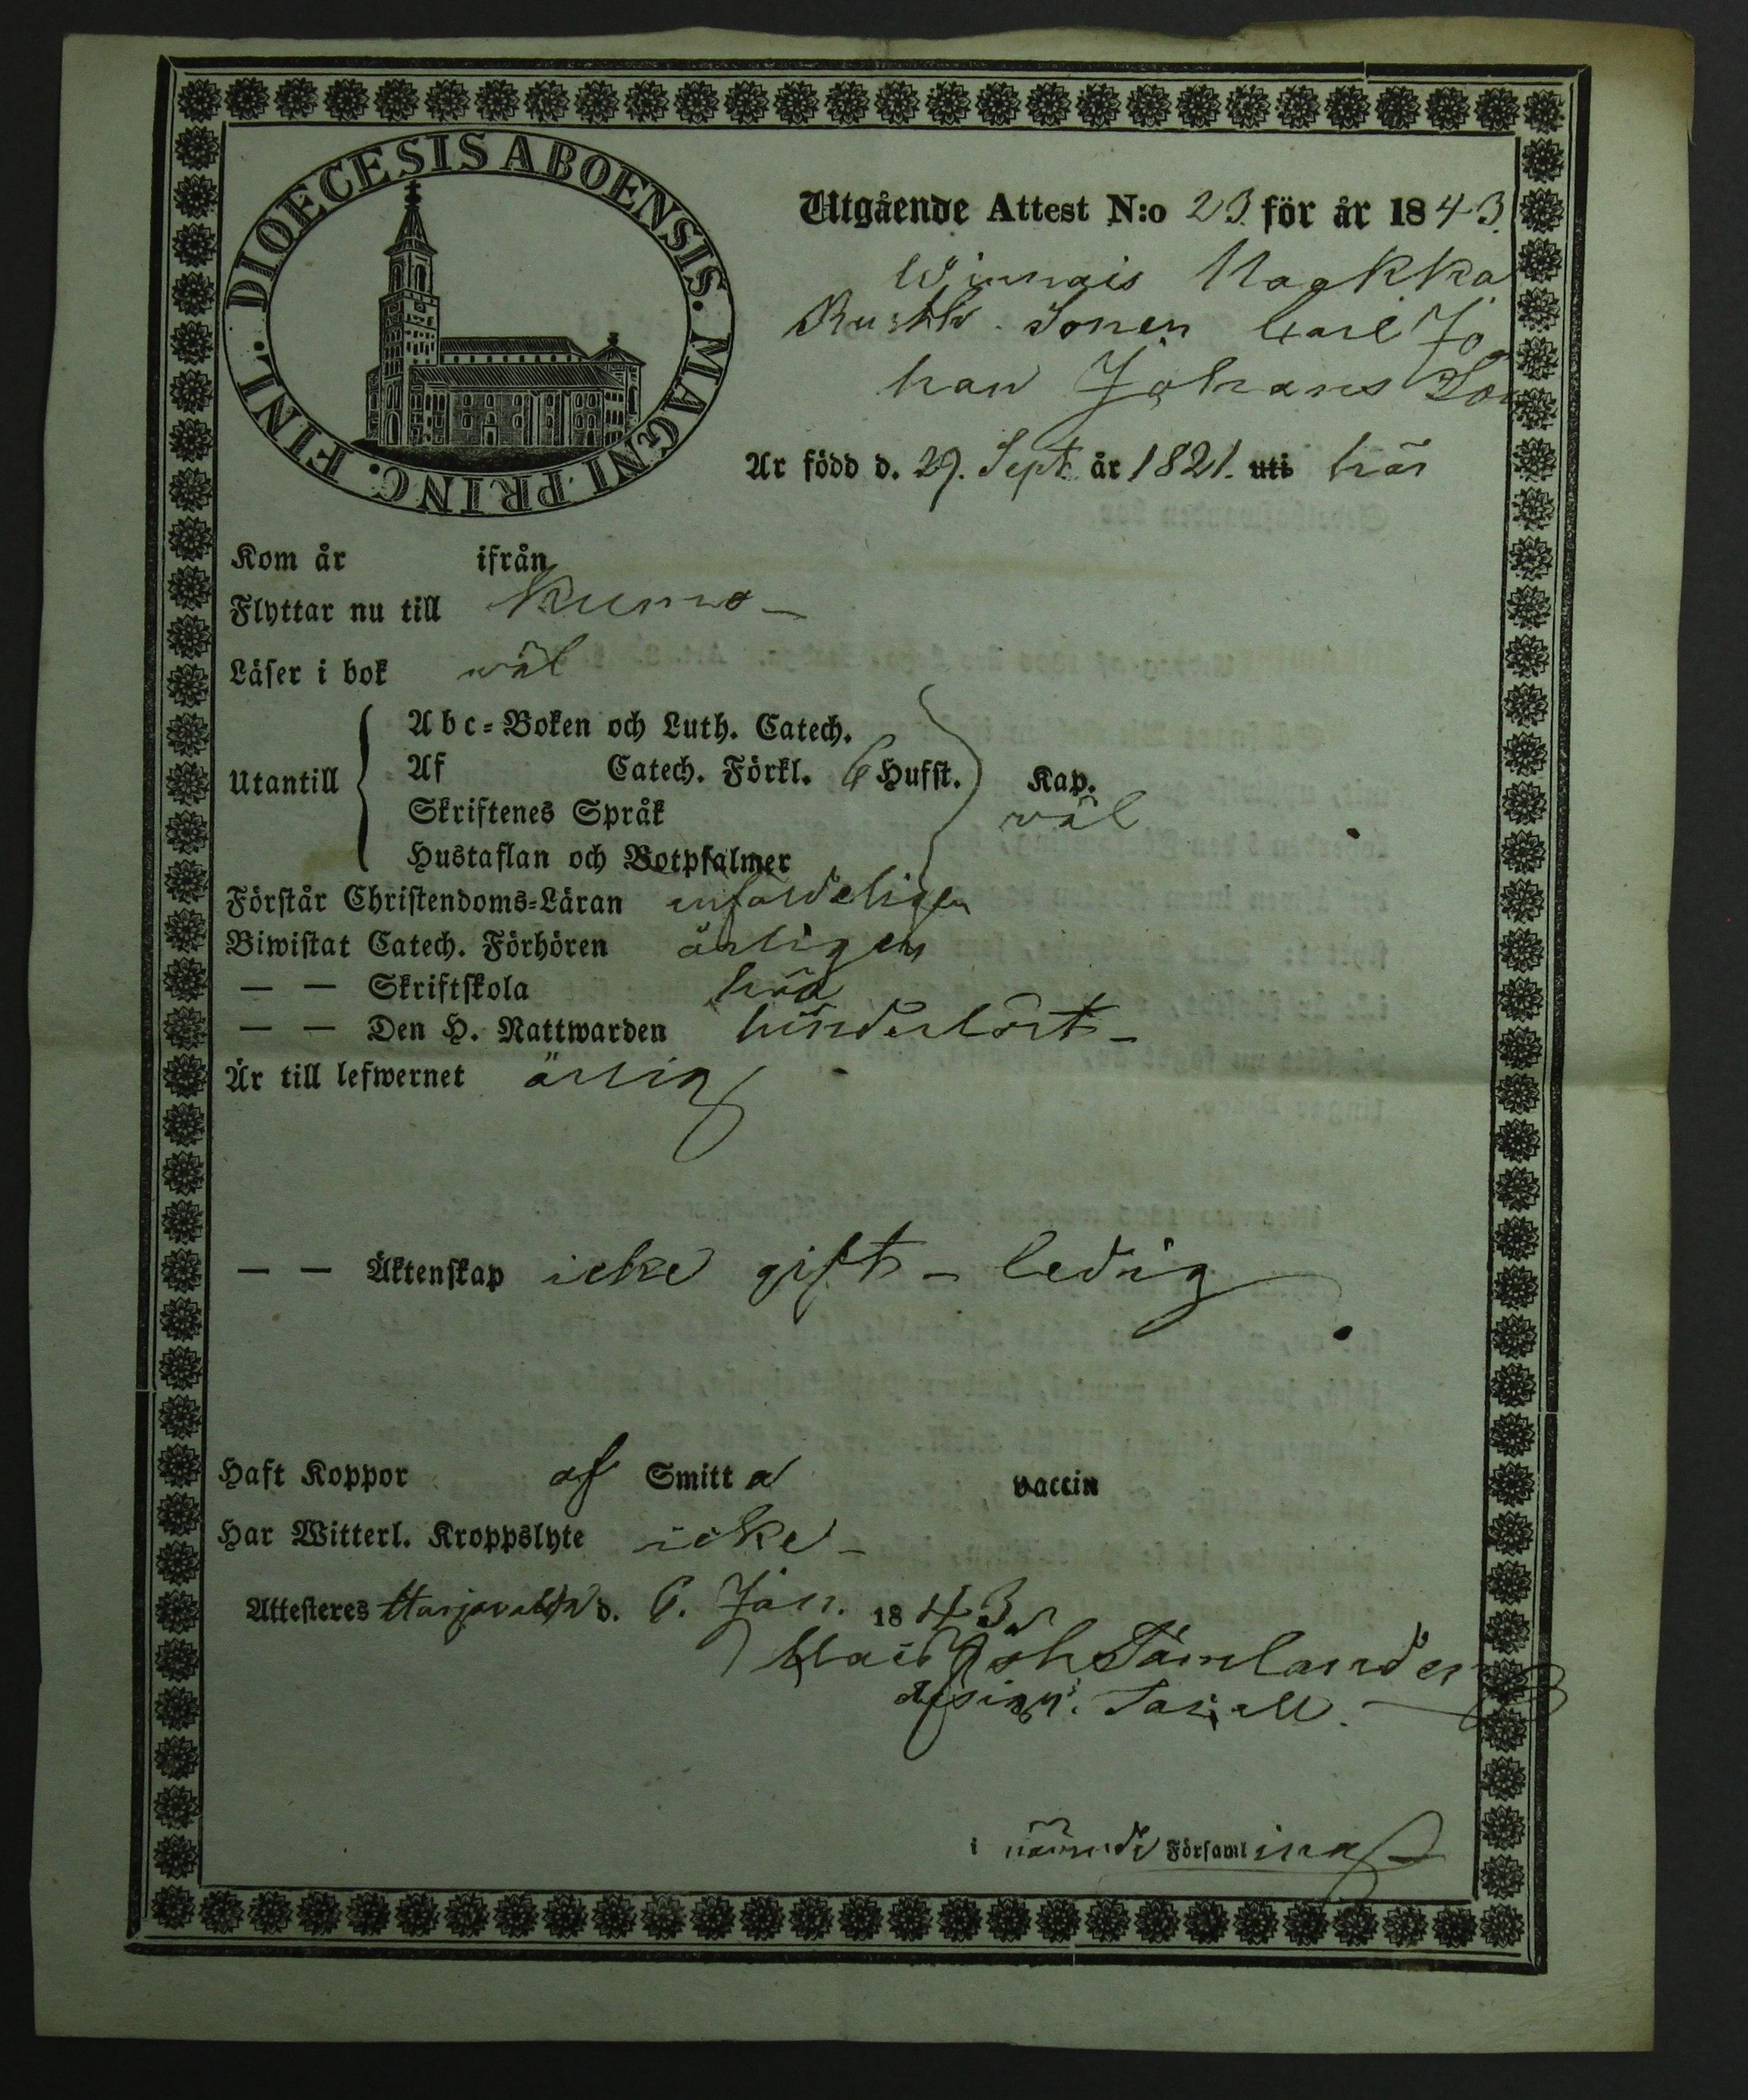 DIOECESIS ABOENSIS. MAGNI PRINC. FINL.
Utgående Attest N:o 23 för år 1843.
Winnais Naakka
Rusth. Sonen Carl Jo
han Johans Son
Är född d. 29. Sept. år 1821. uti här
Kom år ifrån
Flyttar nu till Kumo –
Läser i bok wäl
Utantill
Abc=Boken och Luth. Catech.
Af Catech. Förkl. 6 Hufst. Kap.
Skriftenes Språk wäl
Hustaflan och Botpsalmer
Förstår Christendoms=Läran enfaldeligen
Biwistat Catech. Förhören årligen
— — Skriftskola här
— — Den H. Nattwarden hinderlöst –
Är till lefwernet ärlig
— — Äktenskap icke gift – ledig
Haft Koppor af Smitta vaccin
Har Witterl. Kroppslyte icke –
Attesteres Harjavalta d. 6. Jan. 1843.
Joh
i nämnde Församling